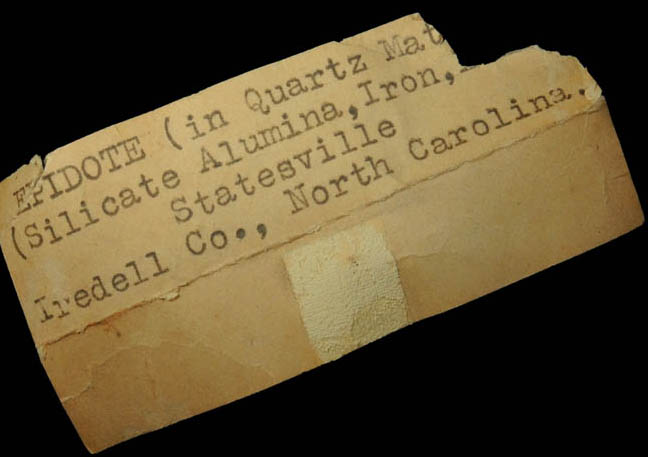 EPIDOTE (in Quartz Mat
(Silicate Alumina,Iron,
Statesville
Iredell Co., North Carolina.